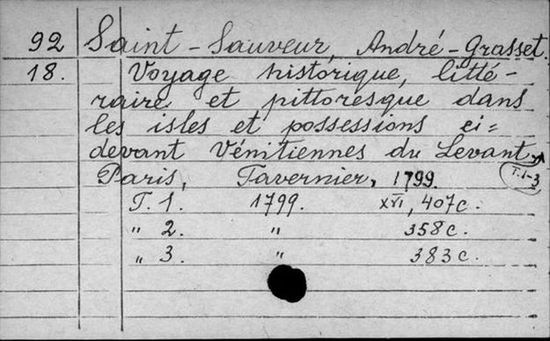 92 Saint-Sauveur, André-Grasset.
18. Voyage historique, litté-
raire et pittoresque dans
les isles et possessions ci=
devant Vénitiennes du Levant
Paris, Tavernier, 1799. T.1-3
T. 1. 1799. XVI, 407 c.
" 2. " 358 c.
" 3. " 383 c.